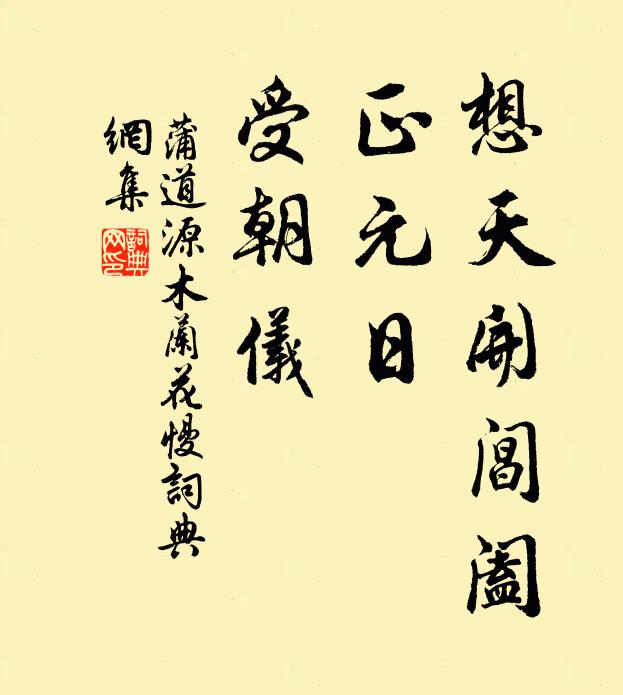 想天開閶闔
正元日
受朝儀
蒲道源木蘭花慢詞典
網集
詞典
网印